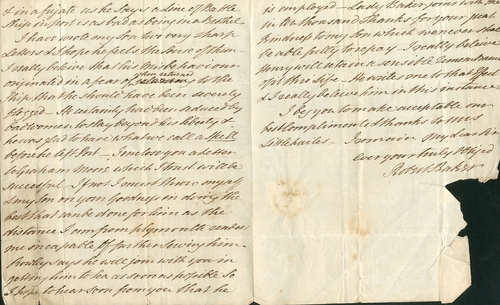 & in a frigate as he says a Line of Battle
Ship in Port is as bad as being in a Brothel
I have wrote my Son two very sharp
Letters & I hope he feels the Sense of them
I really believe that his Misbehaviour
originated in a fear of when returned to the
Ship that he should have been severely
flogged - He certainly had been seduced by
bad women to stay beyond his liberty &
he was glad to have what we call a Spell
before he left Port - I inclose you a Letter
to Graham Moore which I trust will be
successful - If not I must throw myself
& my Son on your Goodness in doing the
best that can be done for him as the
distance I am from Plymouth renders
me incapable of further serving him
Rowley says he will join with you in
getting him to Sea as soon as possible So
I hope to hear soon from you that he
is employed - Lady Baker joins with me
in Ten thousand Thanks for your great
kindness to my Son which we never shall
be able fully to repay - I really believe
Henry will retain a sensible Remembrance
of it his Life - He writes one to that Effect
& I really believe him in this instance
I beg you to make acceptable our
best Compliments & thanks to Mrs
Little hales - I remain my dear Sir
ever your truly Obliged
Robert Baker